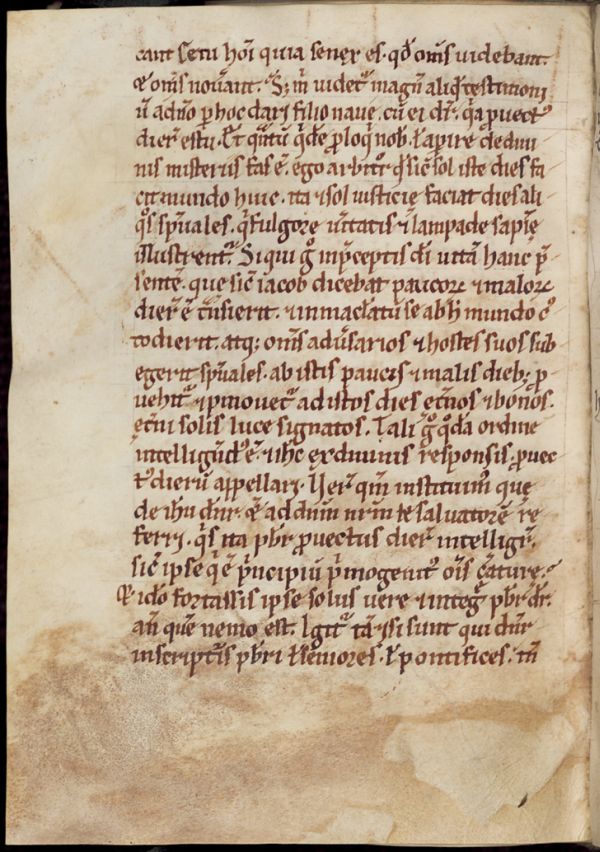 cant Cetu hoi quia senex es. qđ oms uidebant.
& oms nouant. S; m uidet magnu aliqd testimoni
u a dno p hoc dari filio naue. cu ei dr. qa puect
dieru es tu. Et quntu qde p loq nob. ł apire de diui
nis misteriis fas e. ego arbitror qd sic sol iste dies fa
cit mundo huic. ita & sol iusticie faciat dies ali
qs spuales. q fulgore ueritatis & lampade sapie
illustrent. Siqui g in pceptis di uita hanc p
sente. que sic iacob dicebat paucor & malor
dier e transierit. & inmaclatu se ab h mundo c
todierit. atq; oms aduersarios & hostes suos sub
egerit spuales. ab istis paucis & malis dieb; p
uehit & pmouet ad istos dies etnos & bonos.
etni solis luce signatos. Tali g qda ordine
intelligend e. & hc ex diuinis responsis. puec
t dieru appellari. Uer qm instituim que
de ihu dnr. & ad dnm nrm ihm saluatore re
ferri. qs ita pbr puectus dier intelligit.
sic ipse q e pncipiu pmogenit ois creature.
& ido fortassis ipse solus uere & integ pbr dr.
an que nemo est. Igit ta & si sunt qui dnr
in scripturis pbri ł seniores. ł pontifices. tn